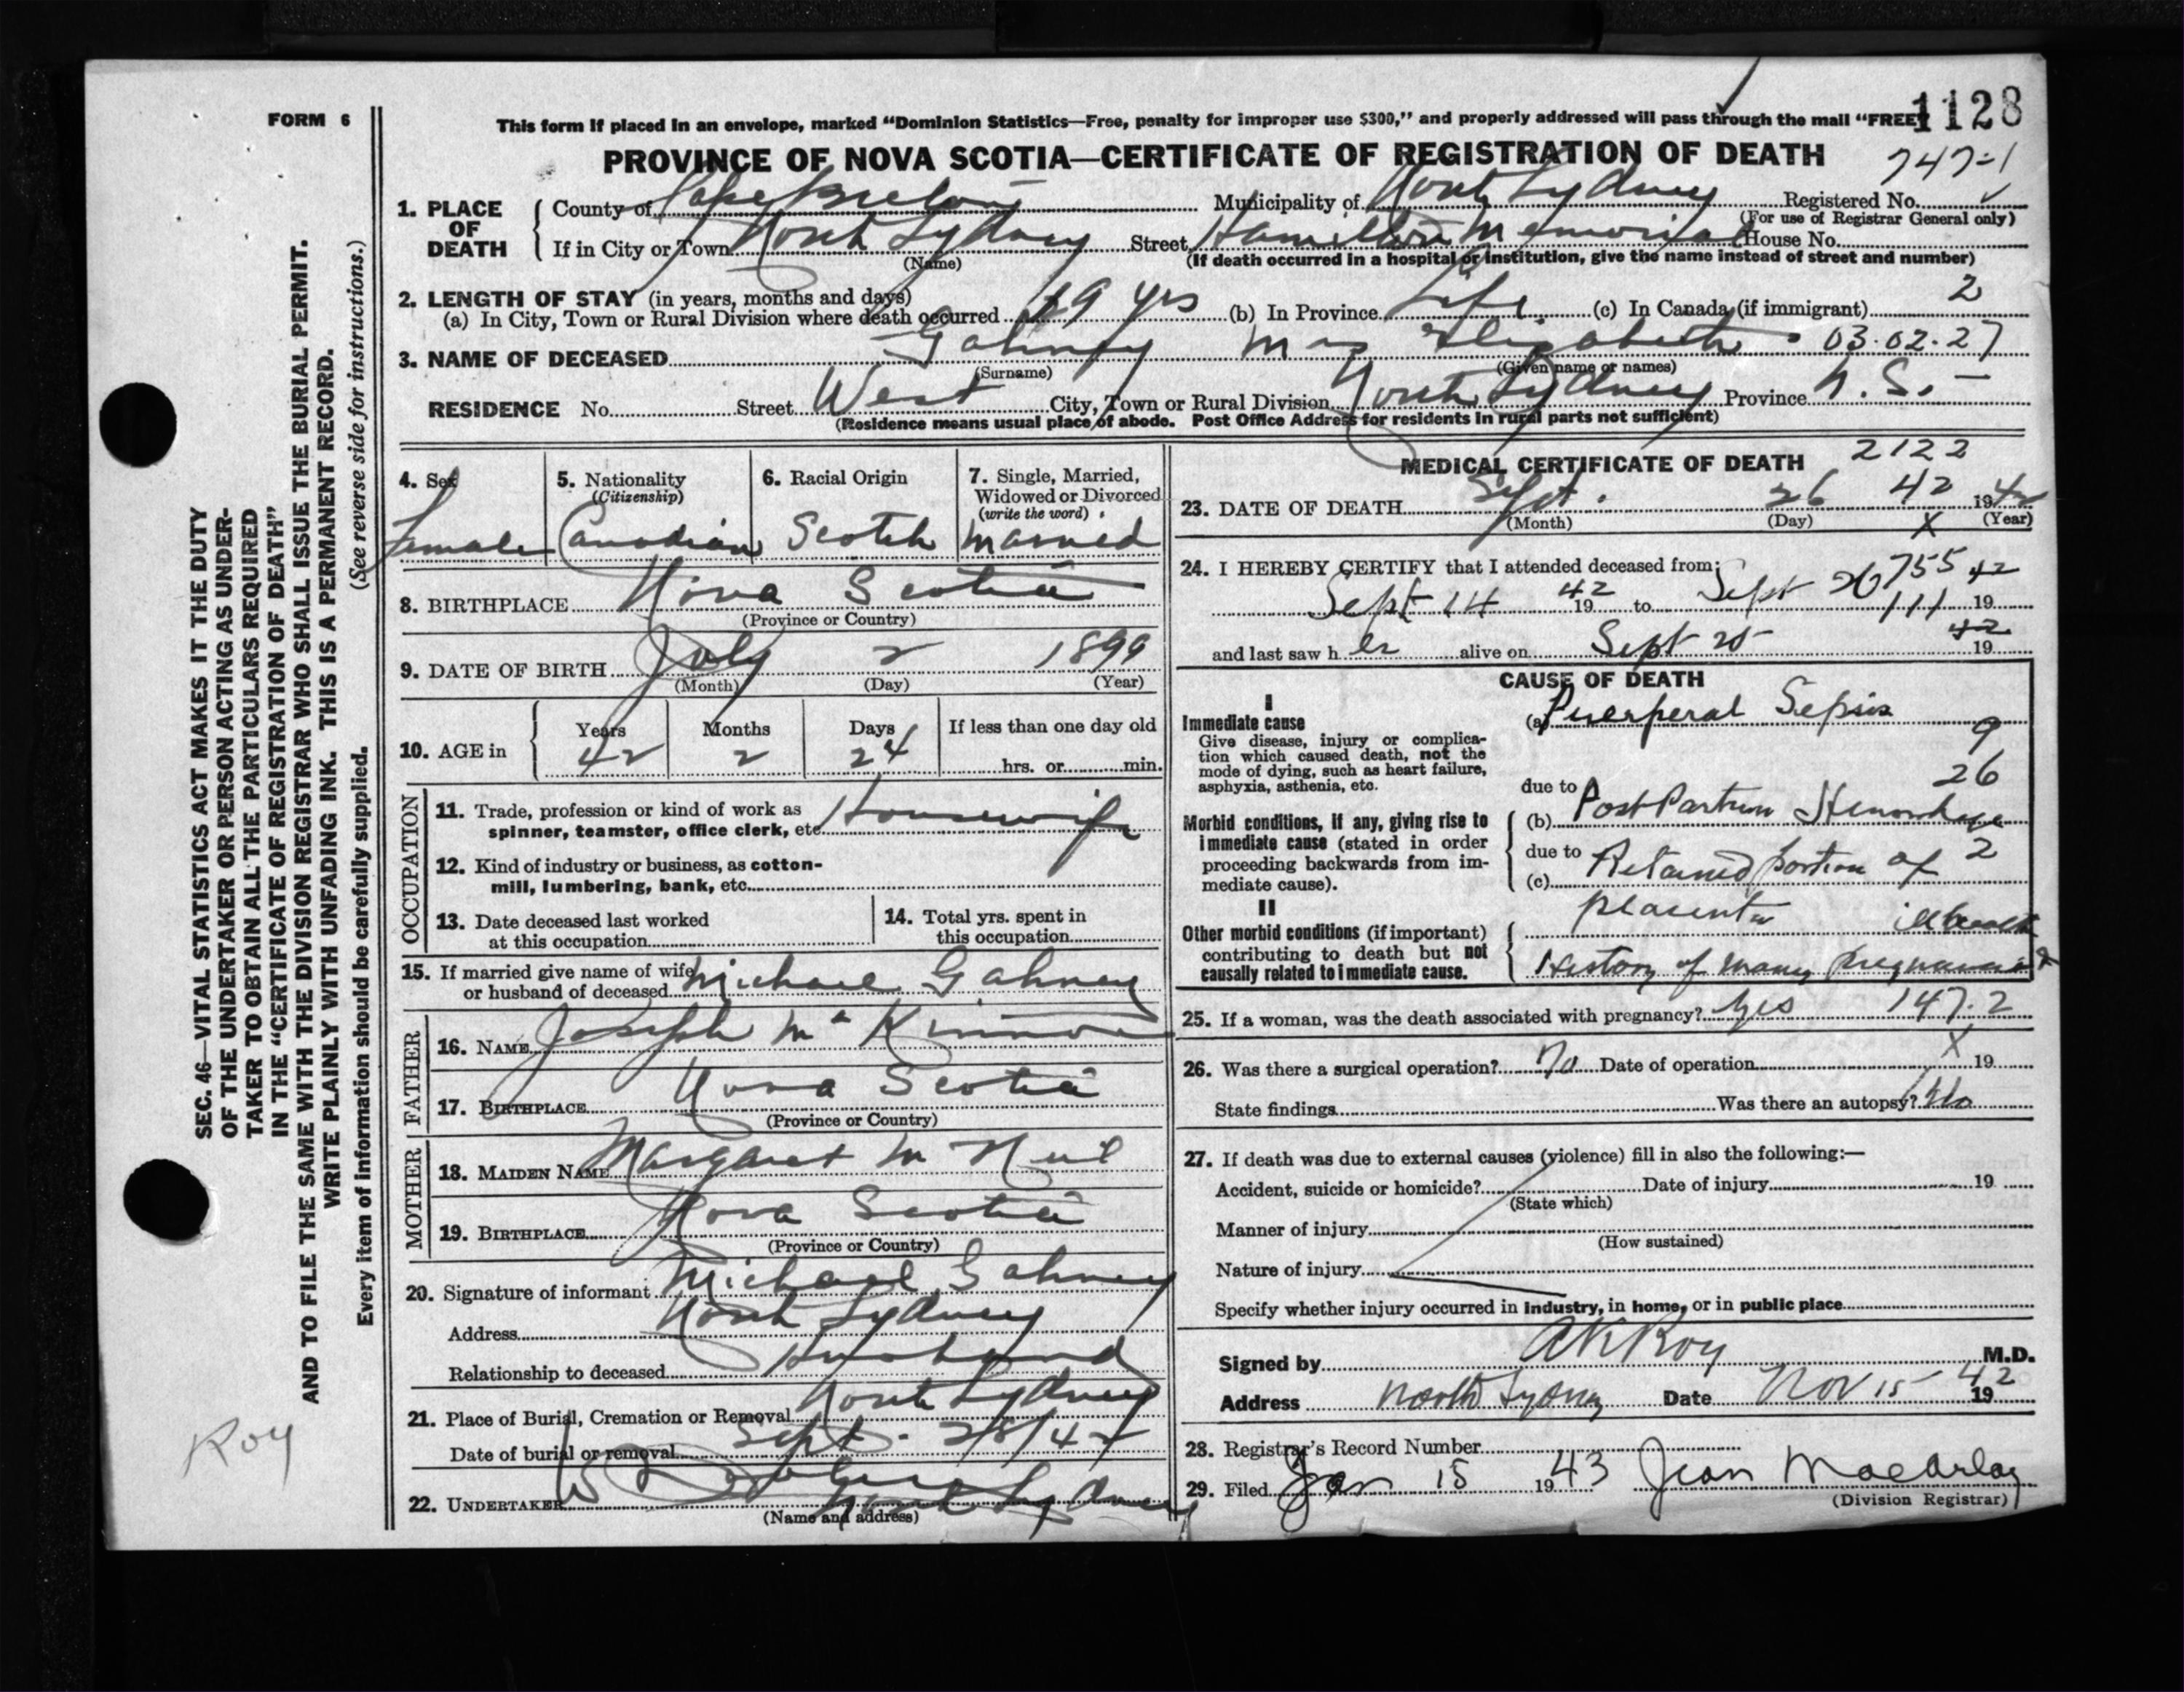 FORM 6
This form if placed in an envelope, marked “Dominion Statistics—Free, penalty for improper use $300,” and properly addressed will pass through the mail “FREE”
1128
PROVINCE OF NOVA SCOTIA—CERTIFICATE OF REGISTRATION OF DEATH
747-1
1. PLACE OF DEATH
County of Cape Breton Municipality of North Sydney Registered No.
(For use of Registrar General only)
If in City or Town North Sydney Street Hamilton Memorial House No.
(Name) (If death occurred in a hospital or institution, give the name instead of street and number)
2. LENGTH OF STAY (in years, months and days)
(a) In City, Town or Rural Division where death occurred 19 yrs (b) In Province Life (c) In Canada (if immigrant) 2
3. NAME OF DECEASED Gahney Elizabeth 03.02.27
(Surname) (Given name or names)
RESIDENCE No. Street West City, Town or Rural Division North Sydney Province N. S.
(Residence means usual place of abode. Post Office Address for residents in rural parts not sufficient)
4. Sex 5. Nationality (Citizenship) 6. Racial Origin 7. Single, Married, Widowed or Divorced (write the word)
Female Canadian Scotch Married
8. BIRTHPLACE Nova Scotia
(Province or Country)
9. DATE OF BIRTH July 2 1899
(Month) (Day) (Year)
10. AGE in Years Months Days If less than one day old
42 2 24 hrs. or min.
OCCUPATION
11. Trade, profession or kind of work as spinner, teamster, office clerk, etc. Housewife
12. Kind of industry or business, as cotton-mill, lumbering, bank, etc.
13. Date deceased last worked at this occupation
14. Total yrs. spent in this occupation
15. If married give name of wife or husband of deceased Michael Gahney
FATHER
16. NAME Joseph Mc Kinnon
17. BIRTHPLACE Nova Scotia
(Province or Country)
MOTHER
18. MAIDEN NAME Margaret Mc Neil
19. BIRTHPLACE Nova Scotia
(Province or Country)
20. Signature of informant Michael Gahney
Address North Sydney
Relationship to deceased Husband
21. Place of Burial, Cremation or Removal North Sydney
Date of burial or removal Sept. 28/42
22. UNDERTAKER North Sydney
(Name and address)
MEDICAL CERTIFICATE OF DEATH 2122
23. DATE OF DEATH Sept. 26 42 1942
(Month) (Day) X (Year)
24. I HEREBY CERTIFY that I attended deceased from:
755
Sept 14 1942 to Sept 26 1942
111
and last saw her alive on Sept 25 1942
CAUSE OF DEATH
I
Immediate cause
Give disease, injury or complication which caused death, not the mode of dying, such as heart failure, asphyxia, asthenia, etc.
(a) Puerperal Sepsis
9
26
due to
Morbid conditions, if any, giving rise to immediate cause (stated in order proceeding backwards from immediate cause).
(b) Post Partum Hemorrhage
due to
2
(c) Retained portion of
placenta
II
Other morbid conditions (if important) contributing to death but not causally related to immediate cause.
History of many pregnancies
25. If a woman, was the death associated with pregnancy? Yes 147.2
26. Was there a surgical operation? No Date of operation X 19
State findings Was there an autopsy? No
27. If death was due to external causes (violence) fill in also the following:—
Accident, suicide or homicide? Date of injury 19
(State which)
Manner of injury
(How sustained)
Nature of injury
Specify whether injury occurred in industry, in home, or in public place
Signed by A K Roy M.D.
Address North Sydney Date Nov 15 1942
28. Registrar's Record Number
29. Filed Jan 15 1943 Jean
(Division Registrar)
SEC. 46—VITAL STATISTICS ACT MAKES IT THE DUTY
OF THE UNDERTAKER OR PERSON ACTING AS UNDER-
TAKER TO OBTAIN ALL THE PARTICULARS REQUIRED
IN THE “CERTIFICATE OF REGISTRATION OF DEATH”
AND TO FILE THE SAME WITH THE DIVISION REGISTRAR WHO SHALL ISSUE THE BURIAL PERMIT.
WRITE PLAINLY WITH UNFADING INK. THIS IS A PERMANENT RECORD.
Every item of information should be carefully supplied. (See reverse side for instructions.)
Roy